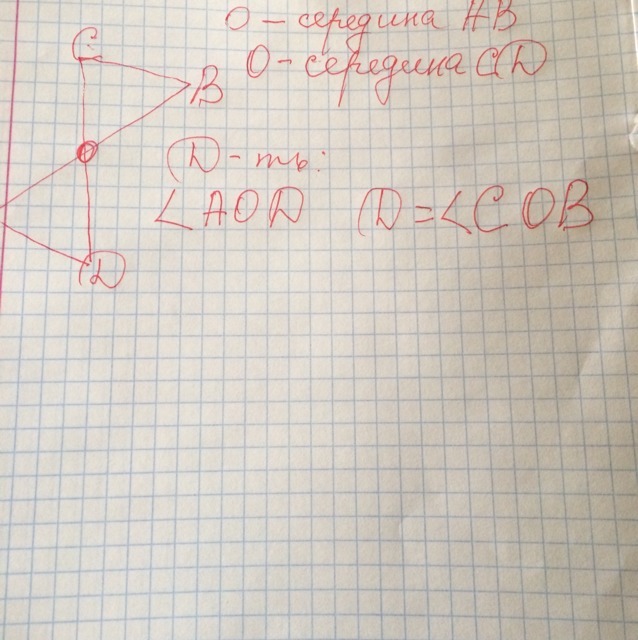 O - середина AB
C
O - середина CD
B
O
D - ть:
∠AOD D = ∠COB
D